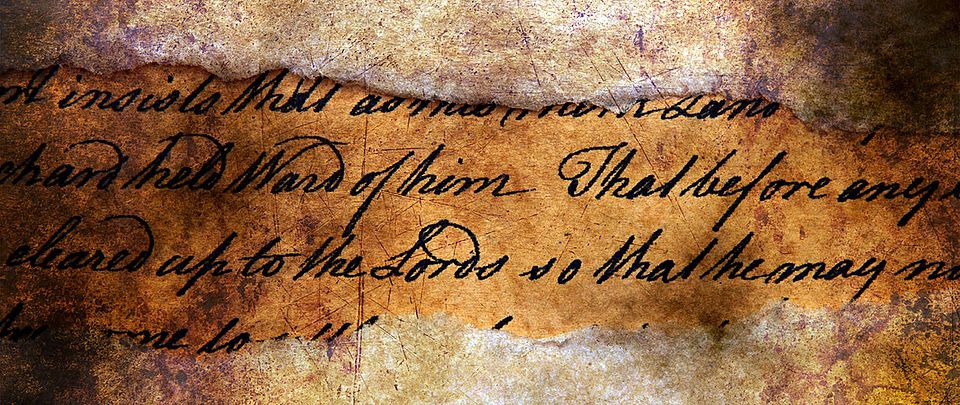 insists that
chard held Ward of him That before any
cleared up to the Lords so that he may
me to